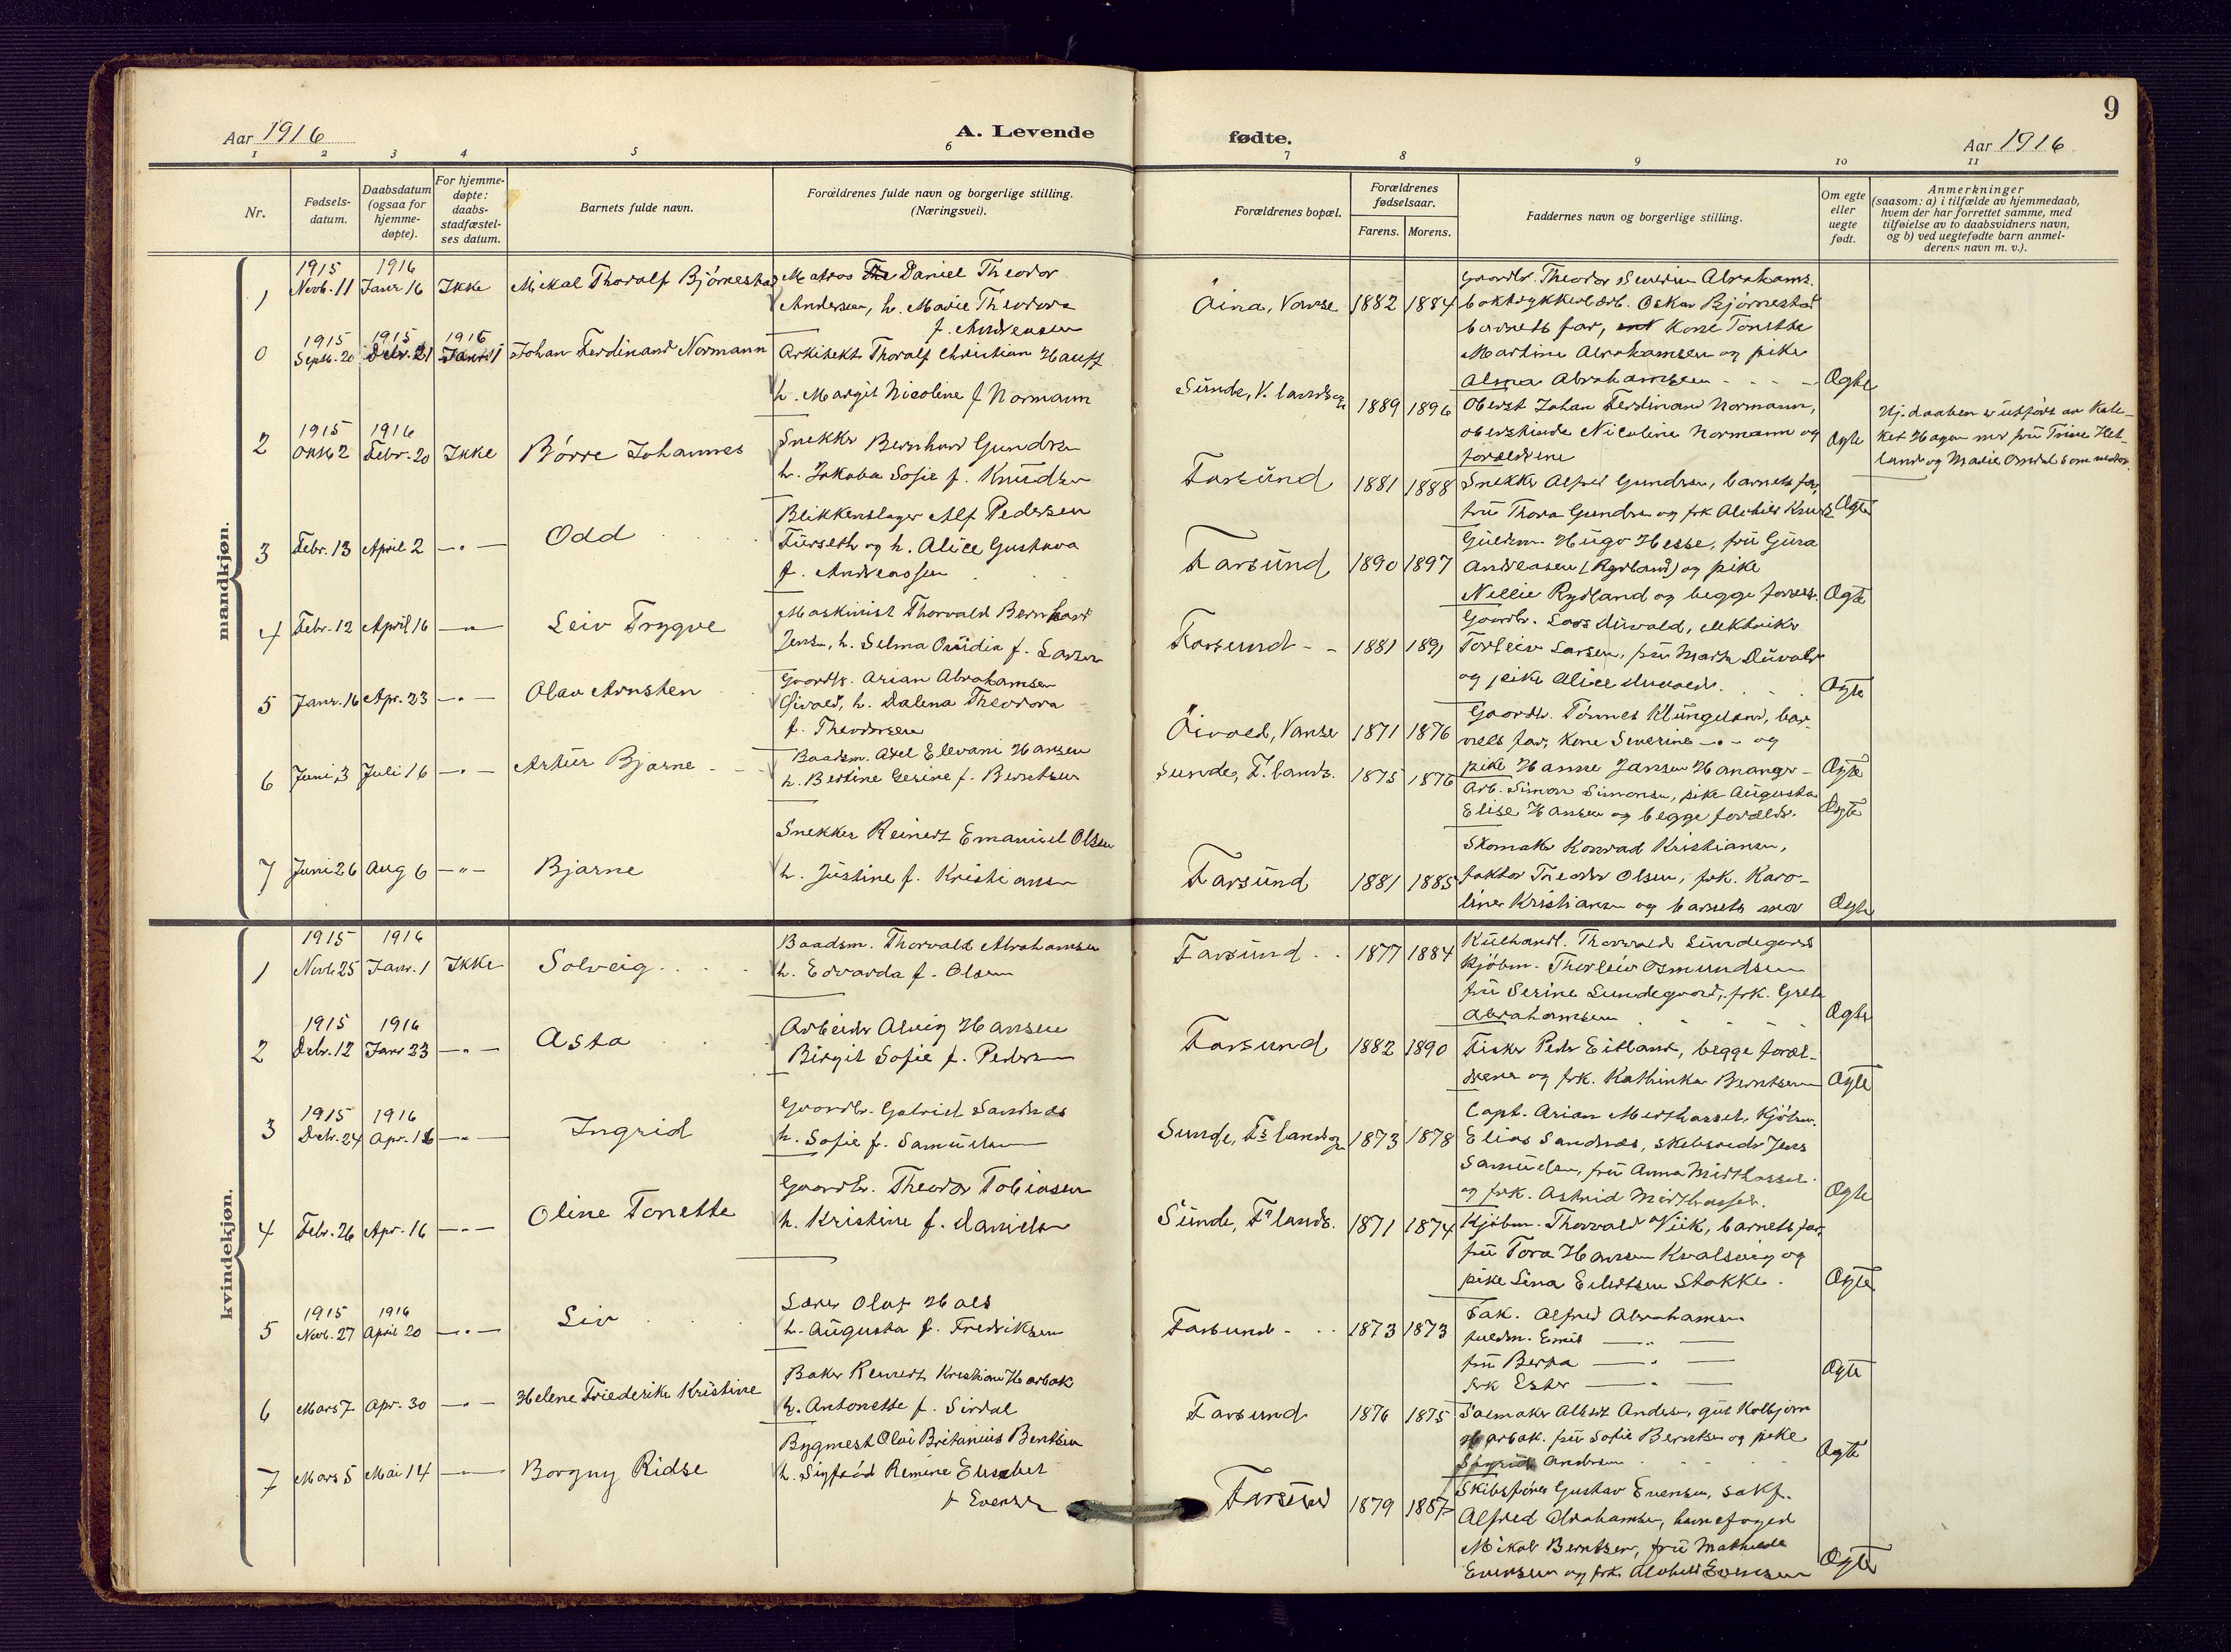 9
Aar 1916
A. Levende
fødte.
Aar 1916
1 2 3 4 5 6 7 8 9 10 11
Nr.
Fødsels-
datum.
Daabsdatum
(ogsaa for
hjemme-
døpte).
For hjemme-
døpte:
daabs-
stadfæstel-
ses datum.
Barnets fulde navn.
Forældrenes fulde navn og borgerlige stilling.
(Næringsvei).
Forældrenes bopæl.
Forældrenes
fødselsaar.
Farens. Morens.
Faddernes navn og borgerlige stilling.
Om egte
eller
uegte
født.
Anmerkninger
(saasom: a) i tilfælde av hjemmedaab,
hvem der har forrettet samme, med
tilføielse av to daabsvidners navn,
og b) ved uegtefødte barn anmel-
derens navn m. v.).
mandkjøn.
1
1915
Novb. 11
1916
Janr 16
Ikke
Mikal Thoralf Bjørnestad
Matros Daniel Theodor
Andersen, h. Marie Theodora
f. Andreasen
Øina, Vanse 1882 1884
Gaardbr. Theodor Severin Abrahams.
boktrykkerbest. Oskar Bjørnestad
barnets far, Kone Tonette
Martine Abrahamsen og pike
Alma Abrahamsen
Ægte
0
1915
Septb. 20
1915
Debr. 21
1916
Janr 1
Johan Ferdinand Normann
Arkitekt Thoralf Christian Hauff
h. Margit Nicoline f Normann
Sunde, 1889 1896
Oberst Johan Ferdinand Normann,
oberstinde Nicoline Normann og
forældrene
Ægte
Hj. daaben er utført av Kate-
ket Hagen med fru Trine Het-
land og Marie som vidner.
2
1915
Oktb 2
1916
Febr. 20
Ikke
Børre Johannes
Snekker Bernhard Gundersen
h. Jakoba Sofie f. Knudsen
Farsund 1881 1888
Snekker Alfred Gundersen, barnets far,
fru Thora Gundersen og frk Alvhild
Ægte
3
Febr. 13
April 2
—"—
Odd
Blikkenslager Alf Pedersen
Furseth og h. Alice Gustava
f. Andreassen
Farsund 1890 1897
Guldsm. Hugo Hesse, fru Gina
Andreasen (Rydland) og pike
Nellie Rydland og begge foræld.
Ægte
4
Febr. 12
April 16
—"—
Leiv Trygve
Maskinist Thorvald Bernhard
Jensen, h. Selma Ovidia f. Larsen
Farsund 1881 1891
Gaardbr. Lars Duvald, elektriker
Torleiv Larsen, fru Marta Duvald
og pike Alice Duvald.
Ægte
5
Janr. 16
Apr. 23
—"—
Olav Arnsten
Gaardbr. Arian Abrahamsen
Øivold, h. Dalena Theodora
f. Theodorsen
Øivold, Vanse 1871 1876
Gaardbr. Tønnes Klungeland, bar-
nets far, kone Severine —"— og
pike Hanne Jansen Hananger
Ægte
6
Juni 3
Juli 16
—"—
Artur Bjarne
Baadsm. Axel Elevani Hansen
h. Bertine Gesine f. Berntsen
Sunde, F. lands. 1875 1876
Arb. Simon Simonsen, pike Augusta
Elise Hansen og begge foræld.
Ægte
7
Juni 26
Aug 6
—"—
Bjarne
Snekker Reinert Emanuel Olsen
h. Justine f. Kristiansen
Farsund 1881 1885
Skomaker Konrad Kristiansen,
faktor Theodor Olsen, frk. Karo-
line Kristiansen og barnets mor
Ægte
kvindekjøn.
1
1915
Novb. 25
1916
Janr. 1
Ikke
Solveig
Baadsm. Thorvald Abrahamsen
h. Edvarda f. Olsen
Farsund 1877 1884
Kulhandl. Thorvald Sundegaard
Kjøbm. Thorleiv Osmundsen
fru Serine Sundegaard, frk. Grete
Abrahamsen
Ægte
2
1915
Debr. 12
1916
Janr 23
—"—
Asta
Arbeider Alvig Hansen
Birgit Sofie f. Pedersen
Farsund 1882 1890
Fisker Peder Eitland, begge foræl-
drene og frk. Kathinka Berntsen
Ægte
3
1915
Debr. 24
1916
Apr. 16
—"—
Ingrid
Gaardbr. Gabriel Sandnes
h. Sofie f. Samuelsen
Sunde, Fs landsogn 1873 1878
Capt. Arian Midthassel, Kjøbm.
Elias Sandnes, skibsreder Jens
Samuelsen, fru Anna Midthassel
og frk. Astrid Midthassel.
Ægte
4
Febr. 26
Apr. 16
—"—
Oline Tonette
Gaardbr. Theodor Tobiasen
h. Kristine f. Danielsen
Sunde, Fs lands. 1871 1874
Kjøbm. Thorvald Viik, barnets far,
fru Tora Hansen Kvalsvig og
pike Lina Eilertsen Stokke.
Ægte
5
1915
Novb. 27
1916
April 20
—"—
Liv
Lærer Olaf Hals
h. Augusta f. Fredriksen
Farsund 1873 1873
Sak. Alfred Abrahamsen
fuldm. Emil —"—
fru Berta —"—
frk Ester —"—
Ægte
6
Mars 7
Apr. 30
—"—
Helene Friederike Kristine
Baker Reinert Kristian Harbak
h. Antonette f. Sirdal
Farsund 1876 1875
Salmaker Albert Andersen, gut Kolbjørn
Harbak. fru Sofie Berntsen og pike
Sigrid Andersen
Ægte
7
Mars 5
Mai 14
—"—
Borgny Ridse
Bygmest Olai Britanius Berntsen
h. Sigfrid Remine Elisabet
f. Evensen
Farsund 1879 1887
Skibsfører Gustav Evensen, sakf.
Alfred Abrahamsen, havnefoged
Mikal Berntsen, fru Mathilde
Evensen og frk. Alvhild Evensen
Ægte